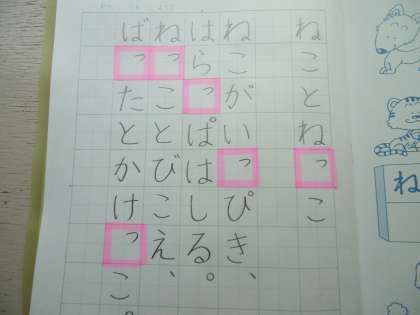 ねことねっこ
ねこがいっぴき、
はらっぱはしる。
ねっことびこえ、
ばったとかけっこ。
ね